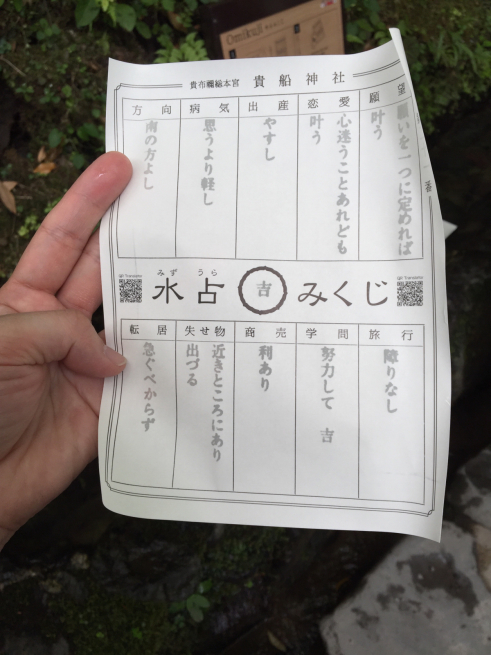 Omikuji
貴布禰総本宮 貴船神社
願望
願いを一つに定めれば
叶う
恋愛
心迷うことあれども
叶う
出産
やすし
病気
思うより軽し
方向
南の方よし
みず うら
水占 吉 みくじ
旅行
障りなし
学問
努力して 吉
商売
利あり
失せ物
近きところにあり
出づる
転居
急ぐべからず